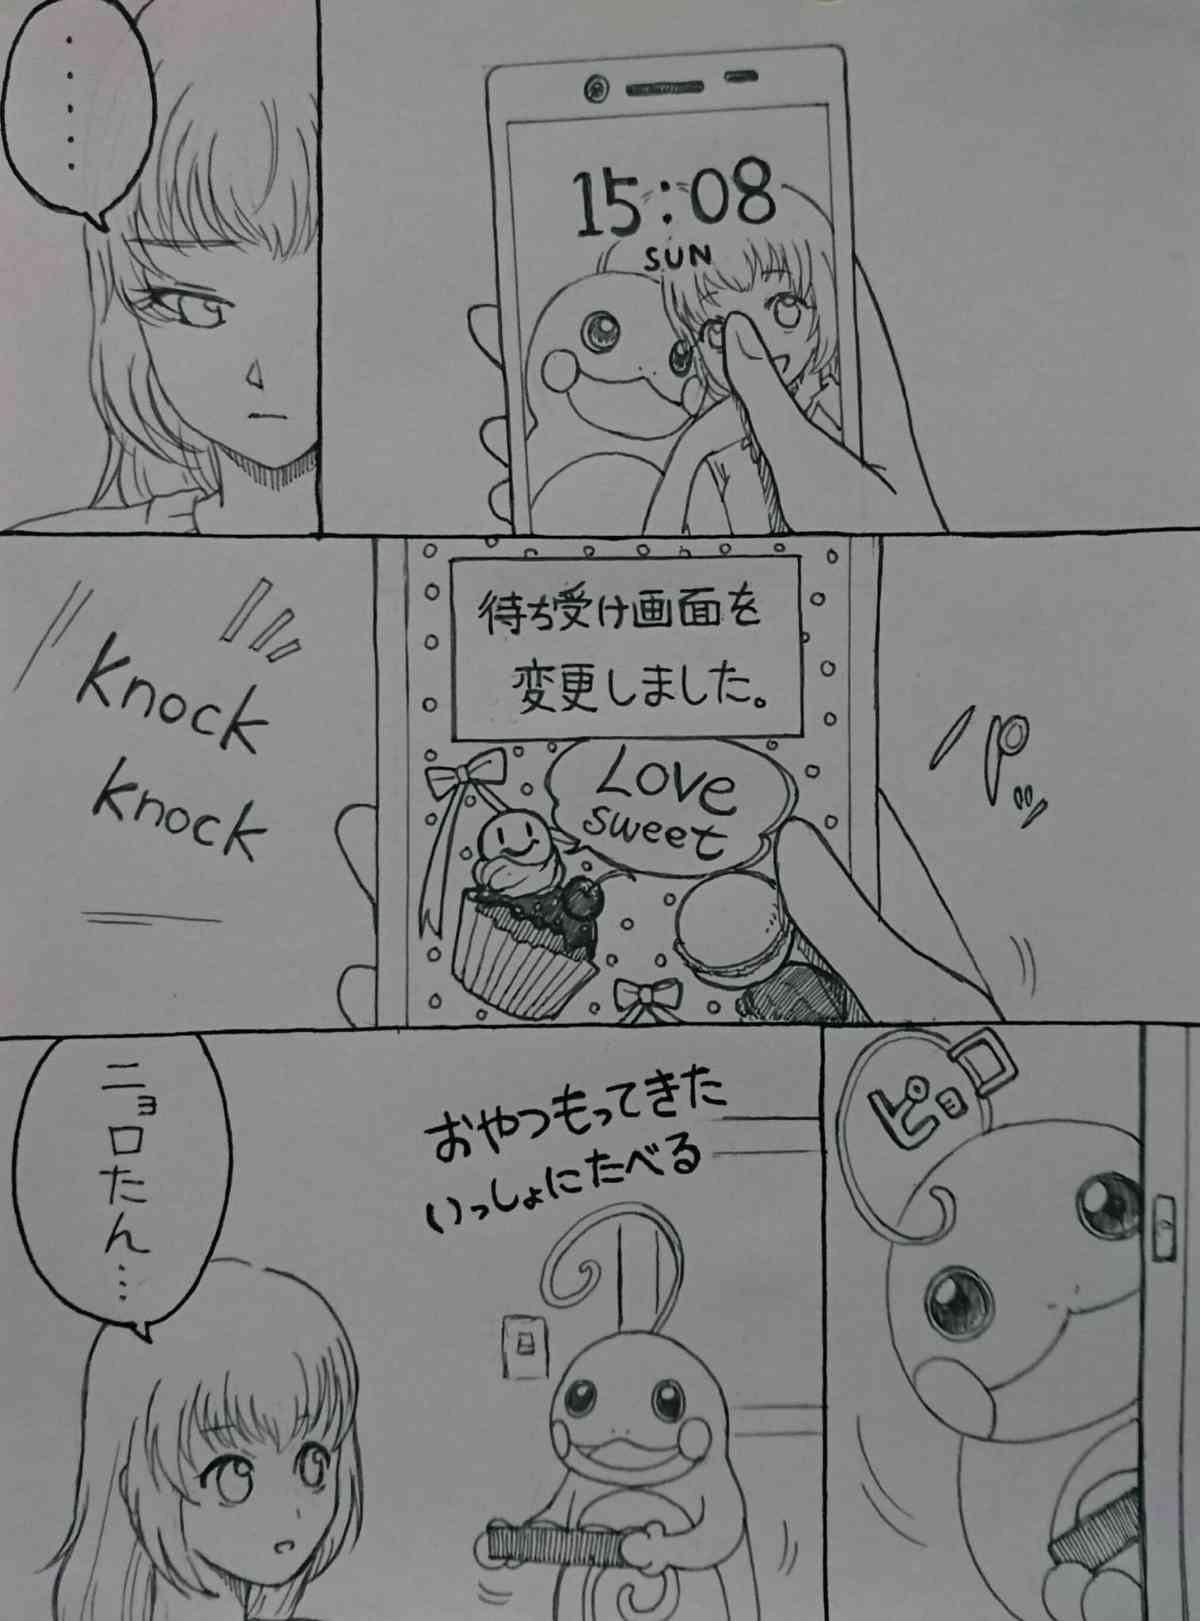 15:08
SUN
・・・・・
パッ
待ち受け画面を
変更しました。
Love
sweet
knock
knock
ピョ
おやつもってきた
いっしょにたべる
ニョロたん…